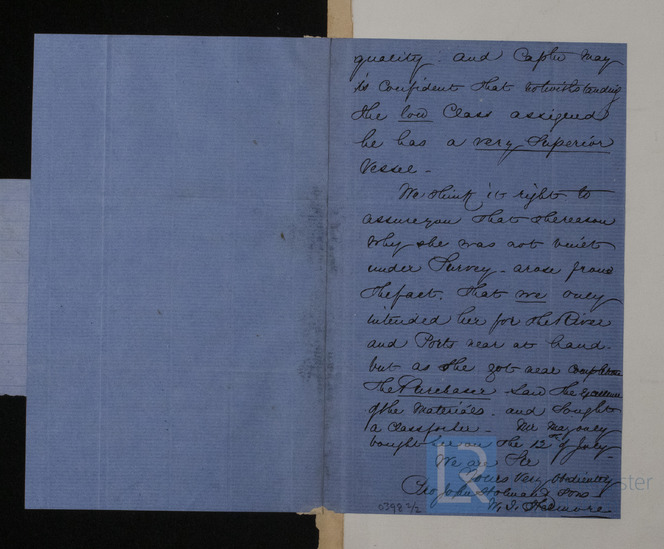 quality. and Captn May
is Confident that notwithstanding
the low Class assigned
he has a very Superior
Vessel -
We think it right to
assure you that the reason
why she was not built
under Survey - arose from
the fact. that we only
intended her for the River
and Ports near at hand.
but as she got near completion
the Purchaser saw the Excellence
of the Materials. and Sought
a Class for her - Mr May only
bought her on the 12th of July -
We are Sir
Yours Very Obediently
Pro John Holman & Sons
W. J.
0398 2/2
LR
ster